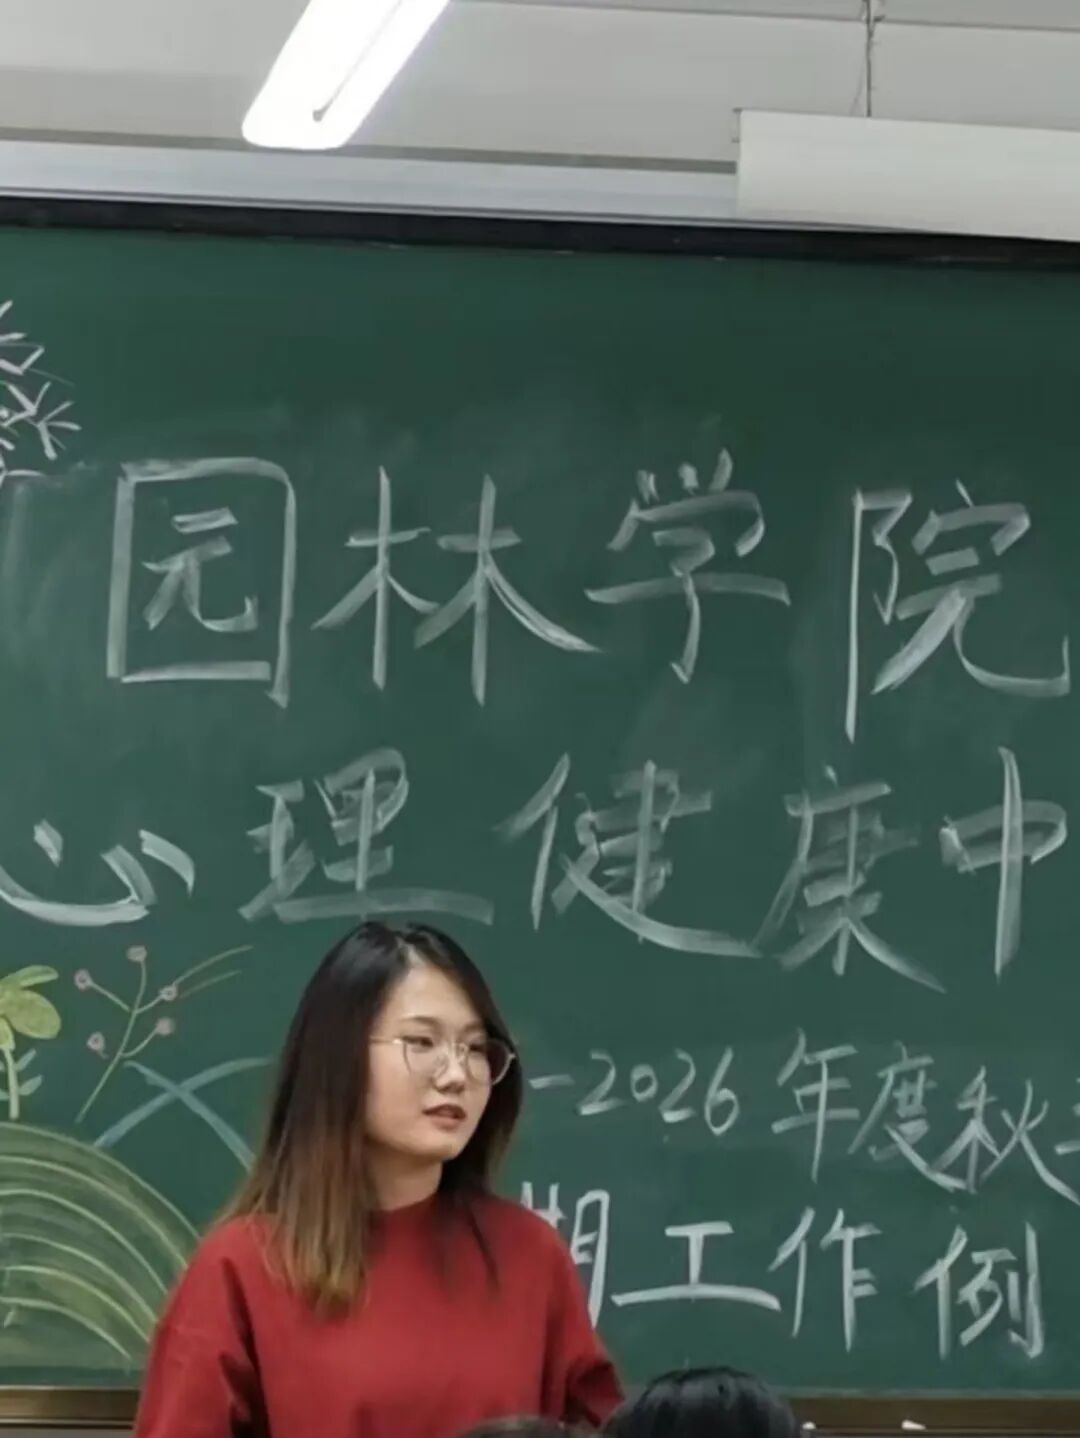 园林学院
心理健康中
-2026年度秋季
期工作例